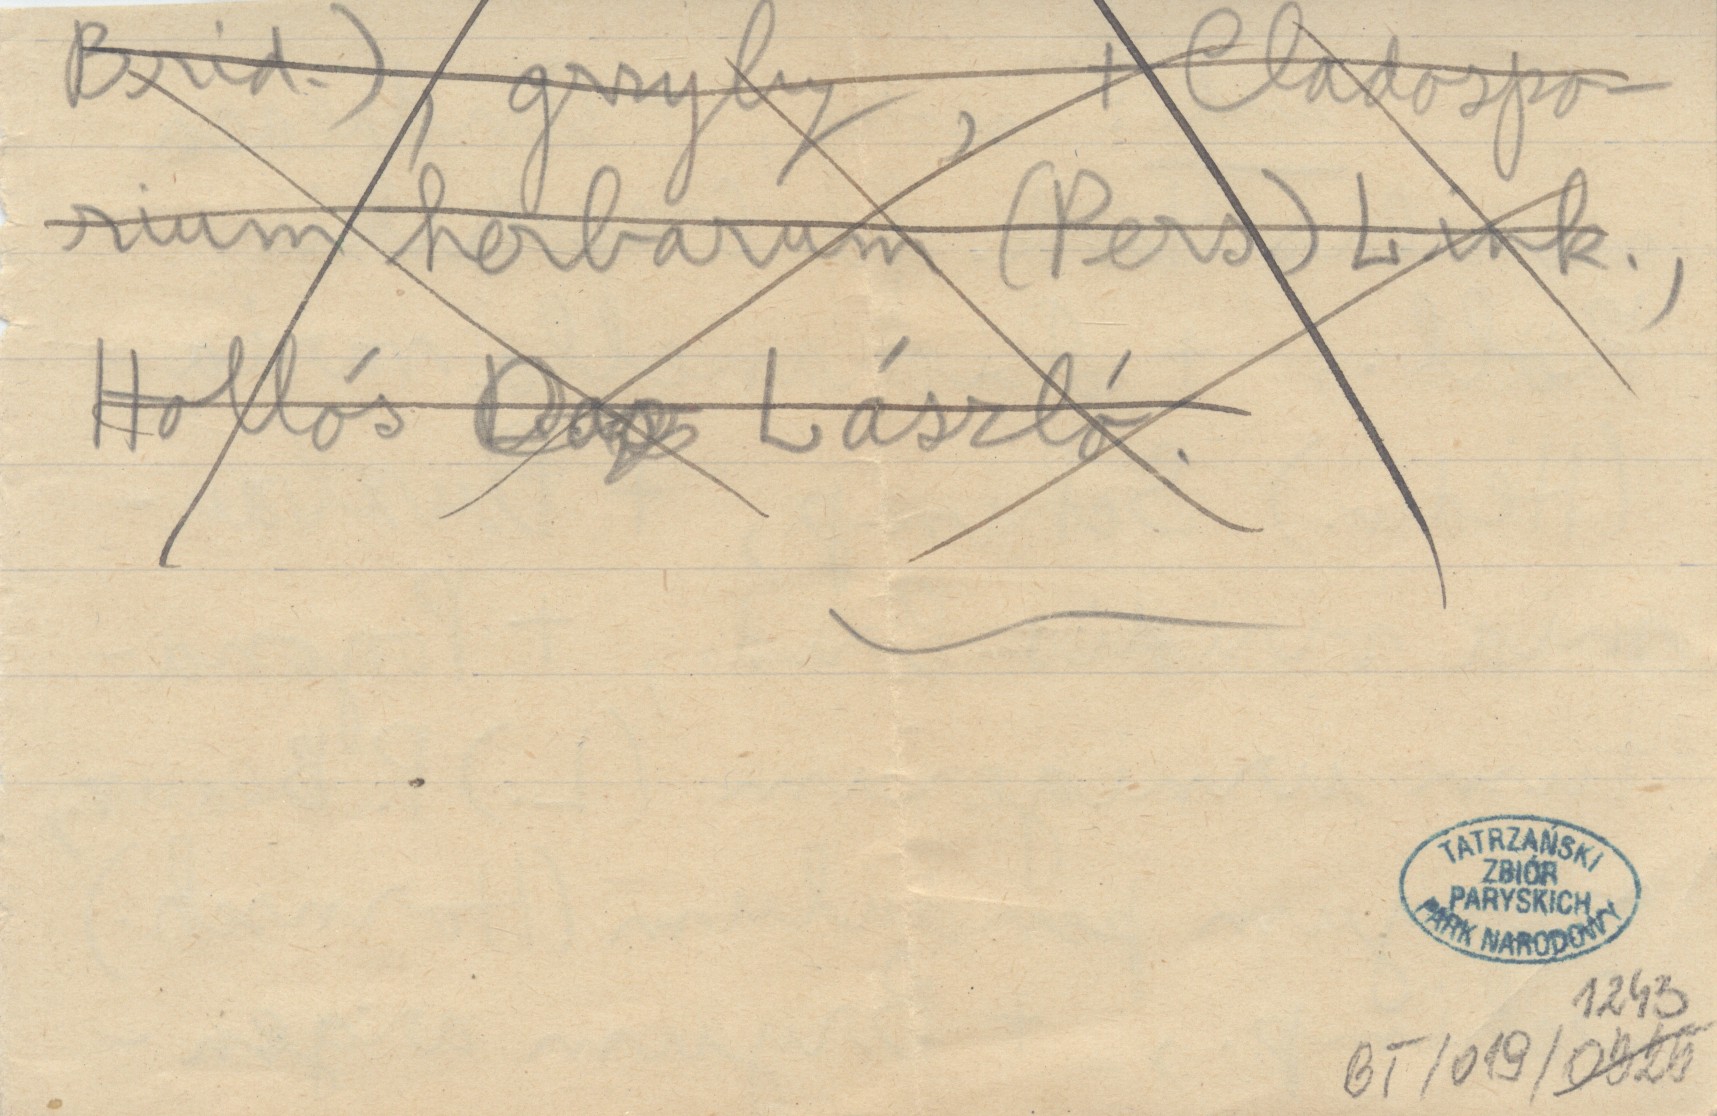 Brid.), grzyby, + Cladospo-
rium herbarum (Pers) Link.,
Hollós László.
TATRZAŃSKI
ZBIÓR
PARYSKICH
PARK NARODOWY
1243
BT/019/